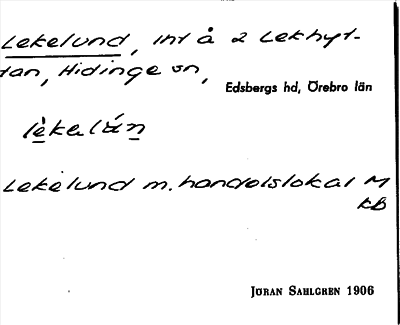 Lekelund, int å 2 Lekhyt-
tan, Hidinge sn,
Edsbergs hd, Örebro län
lèkalán
Lekelund m. handelslokal M
kB
JÖRAN SAHLGREN 1906